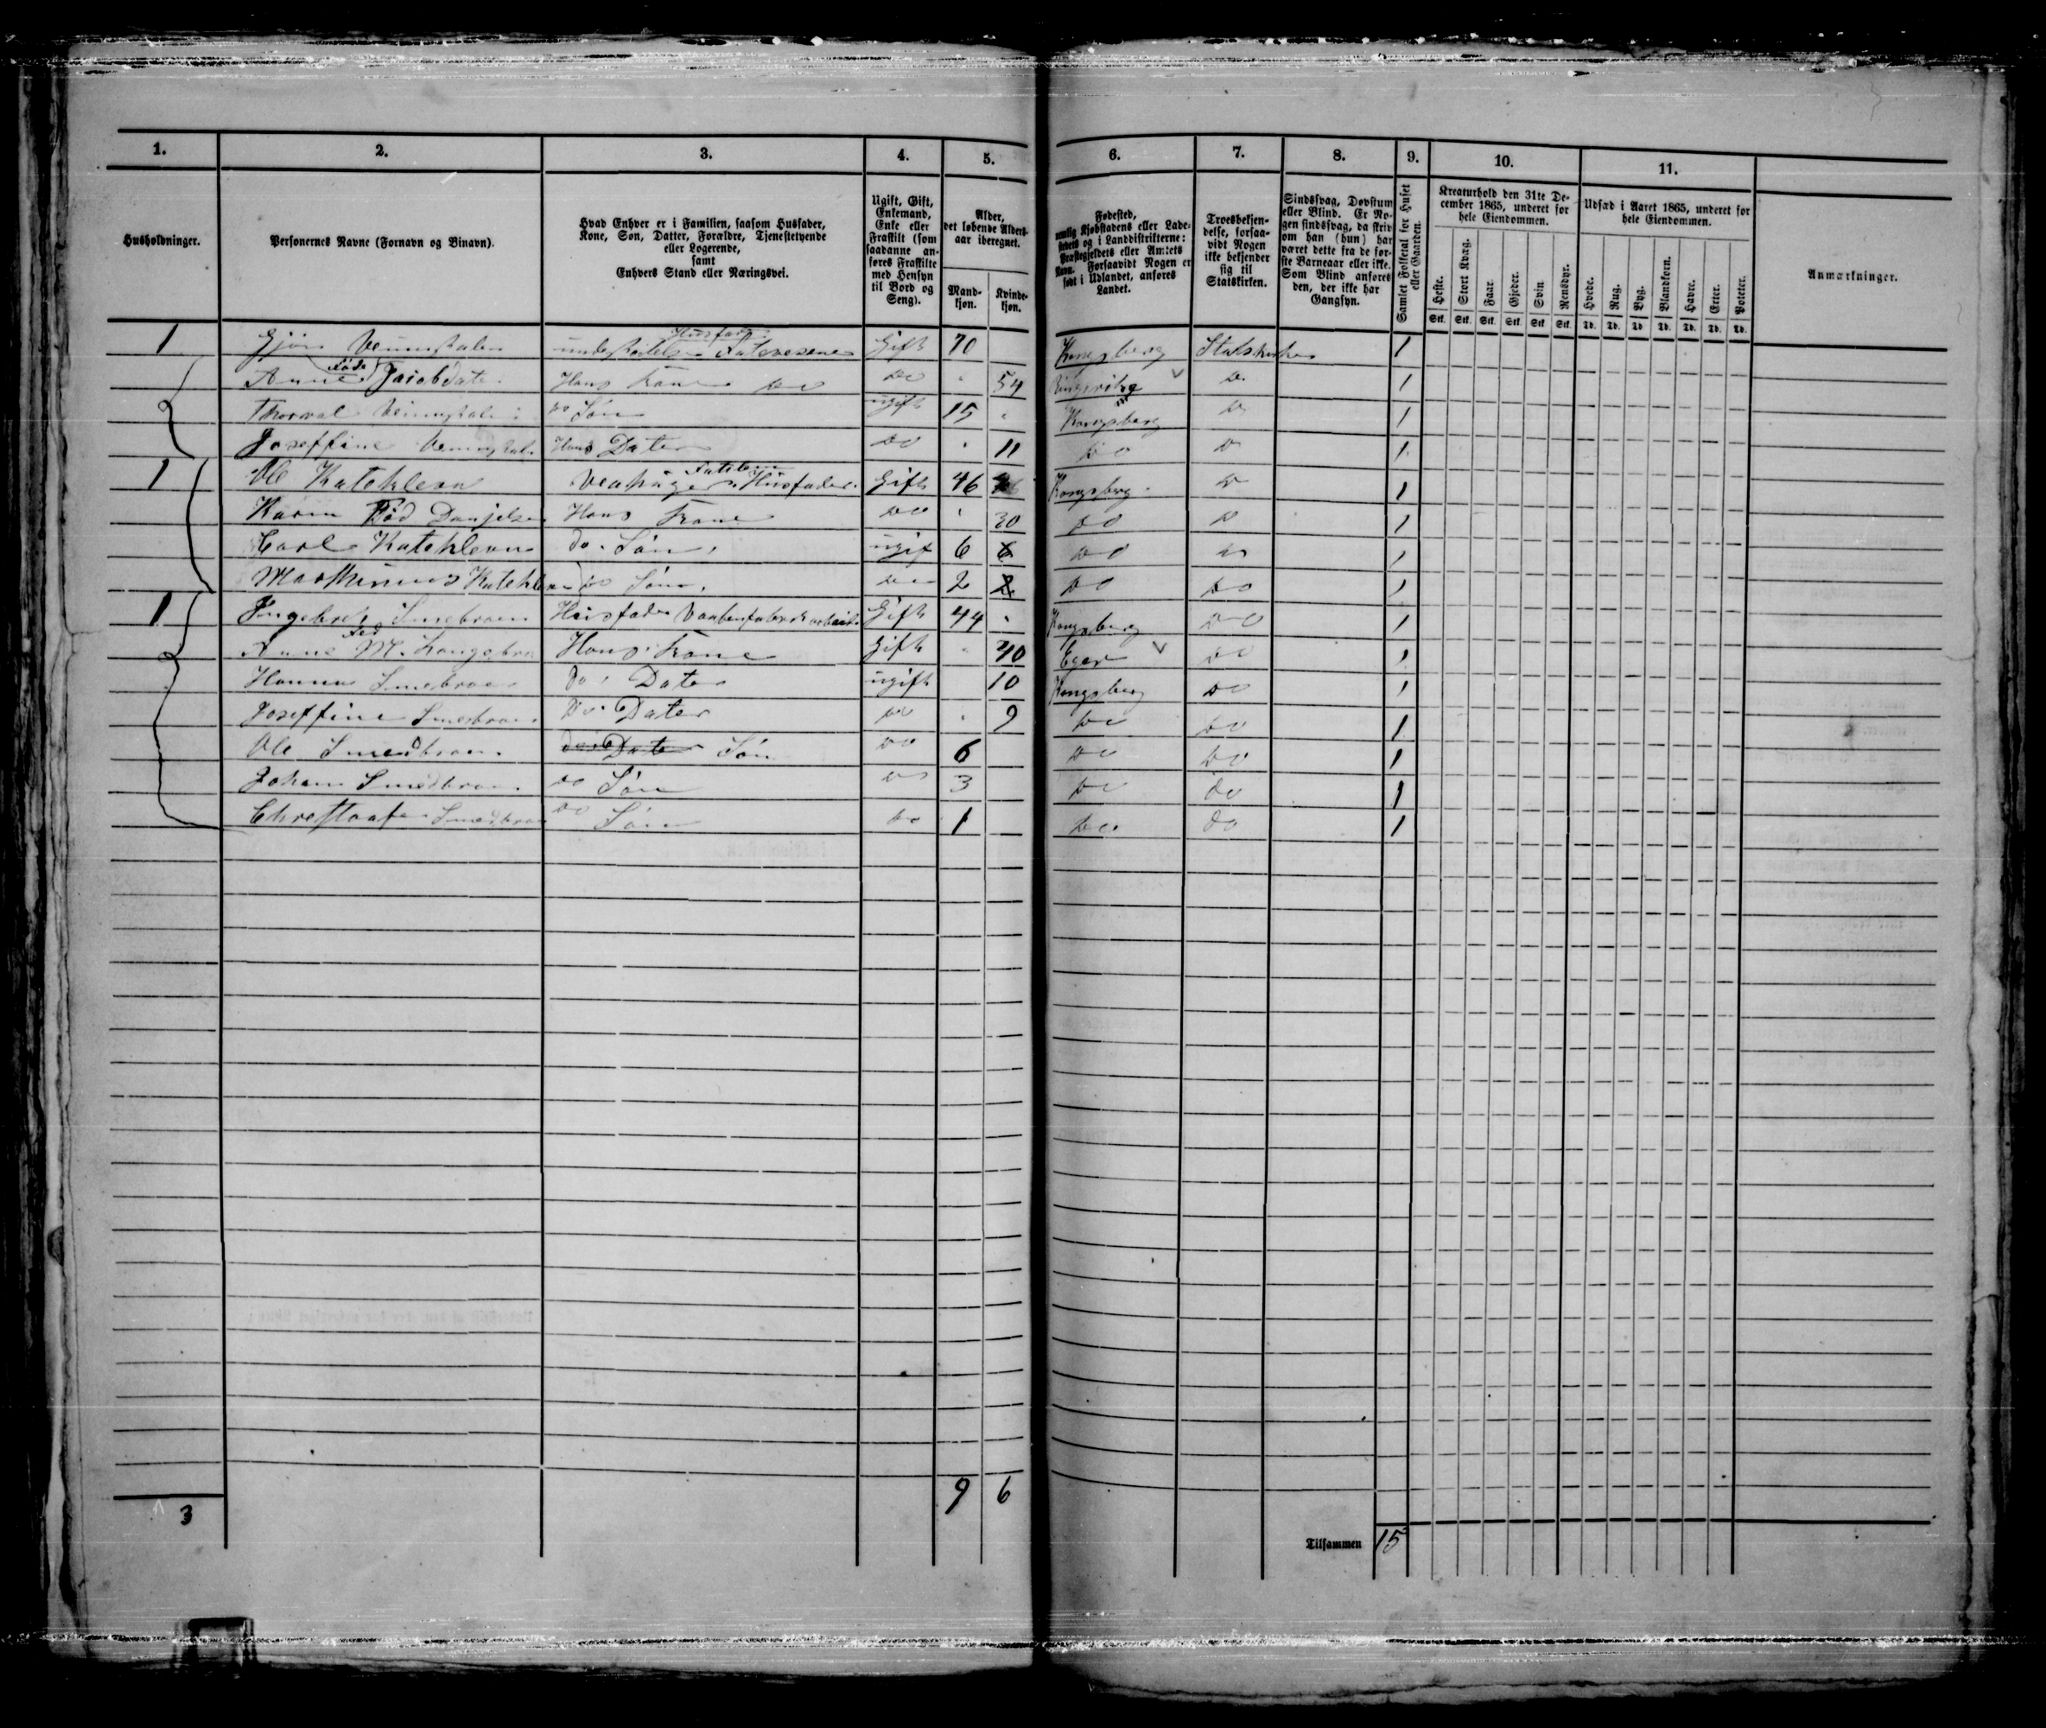 1. 2. 3. 4. 5. 6. 7. 8. 9. 10. 11.
Husholdninger.
Personernes Navne (Fornavn og Binavn).
Hvad Enhver er i Familien, saasom Husfader,
Kone, Søn, Datter, Forældre, Tjenestetyende
eller Logerende,
samt
Enhvers Stand eller Næringsvei.
Ugift, Gift,
Enkemand,
Enke eller
Fraskilt (som
saadanne an-
føres Fraskilte
med Hensyn
til Bord og
Seng).
Alder,
det løbende Alders-
aar iberegnet.
Mand-
kjøn.
Kvinde-
kjøn.
Fødested,
nemlig Kjøbstadens eller Lade-
stedets og i Landdistrikterne:
Præstegjeldets eller Amtets
Navn. Forsaavidt Nogen er
født i Udlandet, anføres
Landet.
Troesbekjen-
delse, forsaa-
vidt Nogen
ikke bekjender
sig til
Statskirken.
Sindssvag, Døvstum
eller Blind. Er No-
gen sindssvag, da skriv
om han (hun) har
været dette fra de før-
ste Barneaar eller ikke.
Som Blind anføres
den, der ikke har
Gangsyn.
Samlet Folketal for Huset
eller Gaarden.
Kreaturhold den 31te De-
cember 1865, underet for
hele Eiendommen.
Heste. Stort Kvæg. Faar. Gjeder. Svin. Rensdyr.
Stk. Stk. Stk. Stk. Stk. Stk.
Udsæd i Aaret 1865, underet for
hele Eiendommen.
Hvede. Rug. Byg. Blandkorn. Havre. Erter. Poteter.
Td. Td. Td. Td. Td. Td. Td.
Anmærkninger.
1 Husfader Gift 70 Kongsberg Statskirke 1
Anne Føde Jacobdater Hans Kone do do 54 Ringerike do 1
Thorval do Søn ugift 15 Kongsberg do 1
Joseffine Hans Dater do 11 do do 1
1 Ole Katehleva Husfader Gift 46 Kongsberg do 1
Karen Fød Danjelsen Hans Kone do 30 do do 1
Carl Katehleva do Søn ugift 6 6 do do 1
Marthinus Katehleva do Søn do 2 2 do do 1
1 Ingebret Smebraaten Husfader Vaabenfabrik arbeider Gift 44 Kongsberg do 1
Anne Fød M. Hans Kone Gift 40 Eger do 1
Hanna Smebraaten do Dater ugift 10 Kongsberg do 1
Joseffine Smedbraaten do Dater do 9 do do 1
Ole Smedbraaten do Dater Søn do 6 do do 1
Johan Smedbraaten do Søn do 3 do do 1
Smedbraaten do Søn do 1 do do 1
3 9 6
Tilsammen 15